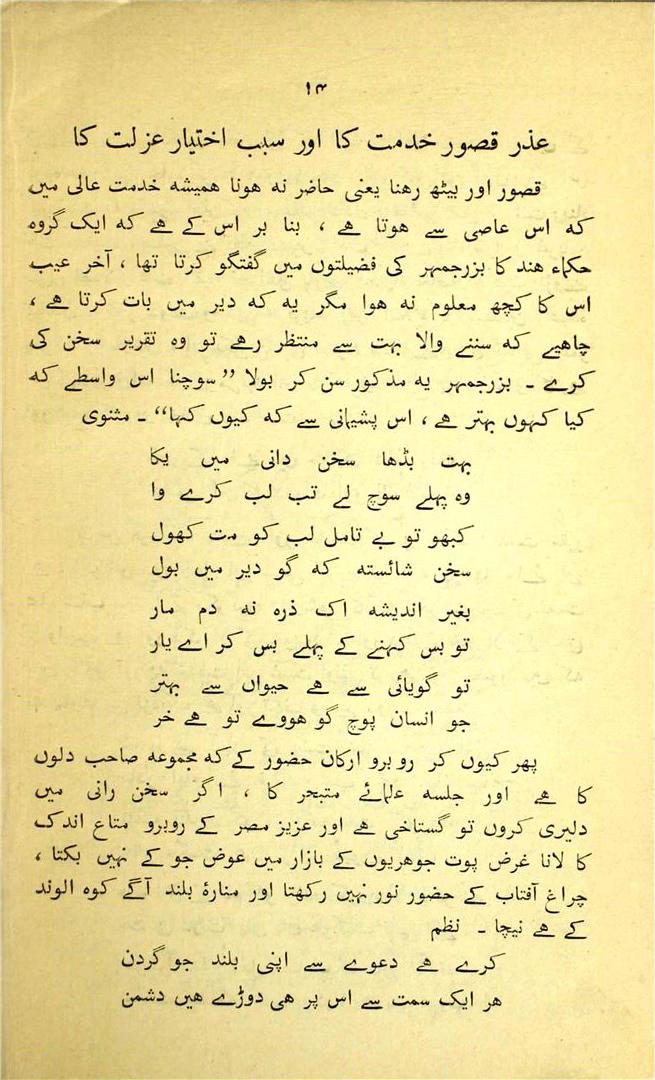 ۱۴
عذر قصور خدمت کا اور سبب اختیار عزلت کا
قصور اور بیٹھ رهنا یعنی حاضر نه هونا همیشه خدمت عالی میں
که اس عاصی سے هوتا هے ، بنا بر اس کے هے که ایک گروه
حکماء هند کا بزرجمهر کی فضیلتوں میں گفتگو کرتا تھا ، آخر عیب
اس کا کچھ معلوم نه هوا مگر یه که دیر میں بات کرتا هے ،
چاهیے که سننے والا بهت سے منتظر رهے تو وه تقریر سخن کی
کرے ۔ بزرجمهر یه مذکور سن کر بولا ”سوچنا اس واسطے که
کیا کہوں بہتر هے ، اس پشیمانی سے که کیوں کہا“ ۔ مثنوی
بهت بڈھا سخن دانی میں یکا
وه پہلے سوچ لے تب لب کرے وا
کبھو تو بے تامل لب کو مت کھول
سخن شائسته که گو دیر میں بول
بغیر اندیشه اک ذره نه دم مار
تو بس کہنے کے پہلے بس کر اے یار
تو گویائی سے هے حیواں سے بہتر
جو انسان پوچ گو هووے تو هے خر
پھر کیوں کر رو برو ارکان حضور کے که مجموعه صاحب دلوں
کا هے اور جلسه علمائے متبحر کا ، اگر سخن رانی میں
دلیری کروں تو گستاخی هے اور عزیز مصر کے روبرو متاع اندک
کا لانا غرض پوت جوهریوں کے بازار میں عوض جو کے نہیں بکتا ،
چراغ آفتاب کے حضور نور نہیں رکھتا اور منارۂ بلند آگے کوه الوند
کے هے نیچا ۔ نظم
کرے هے دعوے سے اپنی بلند جو گردن
هر ایک سمت سے اس پر هی دوڑے هیں دشمن